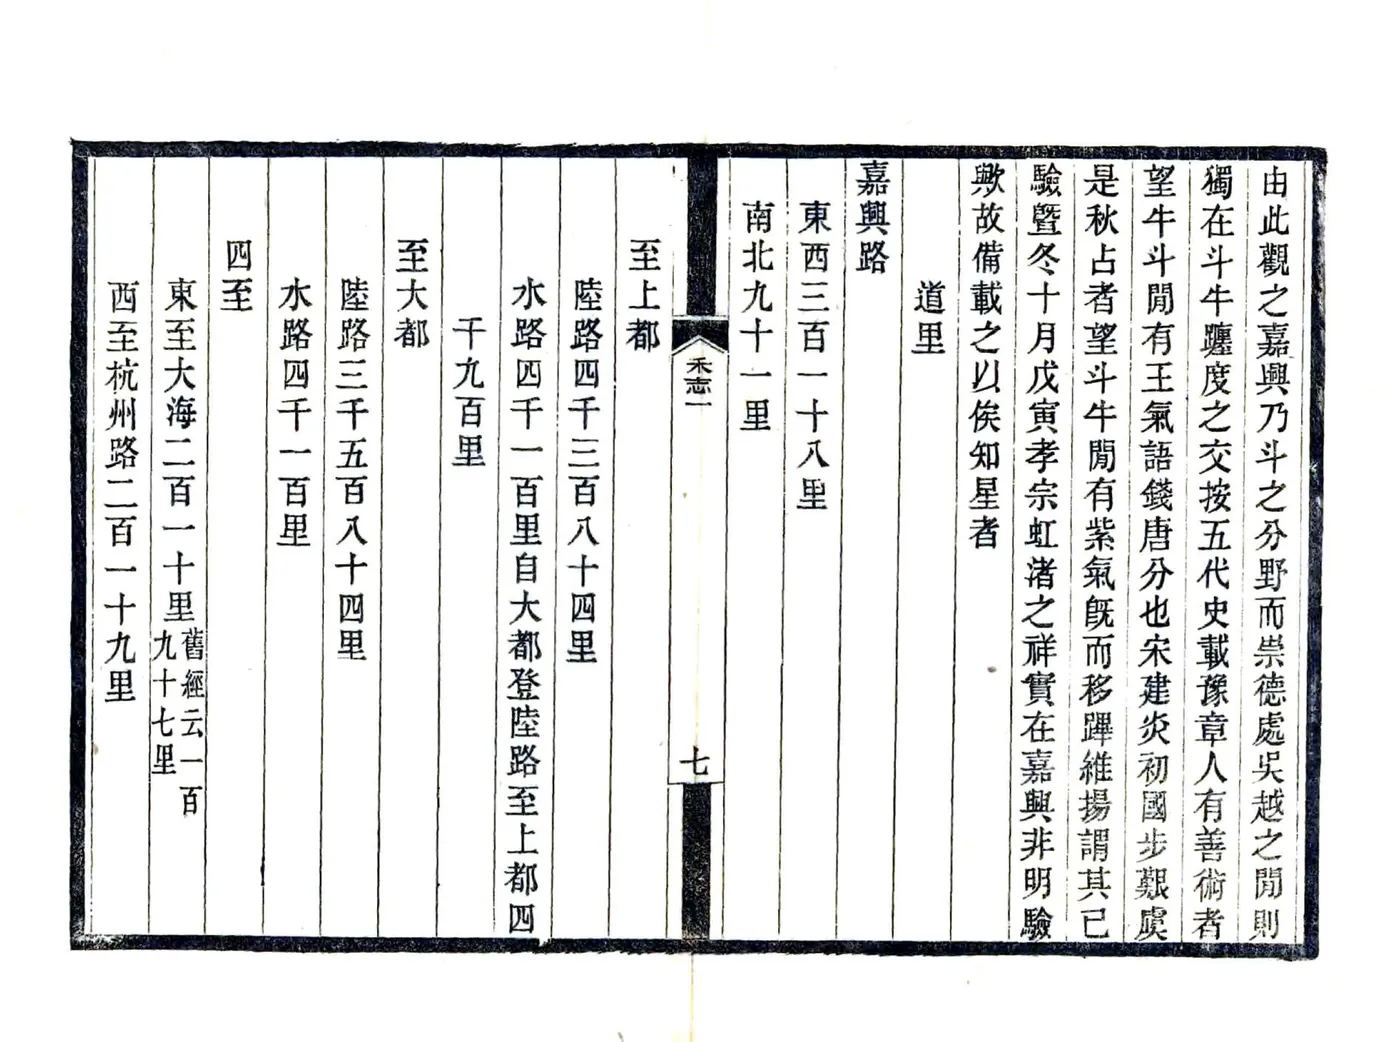 由此觀之嘉興乃斗之分野而崇德處吳越之閒則
獨在斗牛躔度之交按五代史載豫章人有善術者
望牛斗閒有王氣語錢唐分也宋建炎初國步艱虞
是秋占者望斗牛閒有紫氣旣而移蹕維揚謂其已
驗曁冬十月戊寅孝宗虹渚之祥實在嘉興非明驗
歟故備載之以俟知星者
道里
嘉興路
東西三百一十八里
南北九十一里
禾志一
七
至上都
陸路四千三百八十四里
水路四千一百里自大都登陸路至上都四
千九百里
至大都
陸路三千五百八十四里
水路四千一百里
四至
東至大海二百一十里舊經云一百
九十七里
西至杭州路二百一十九里